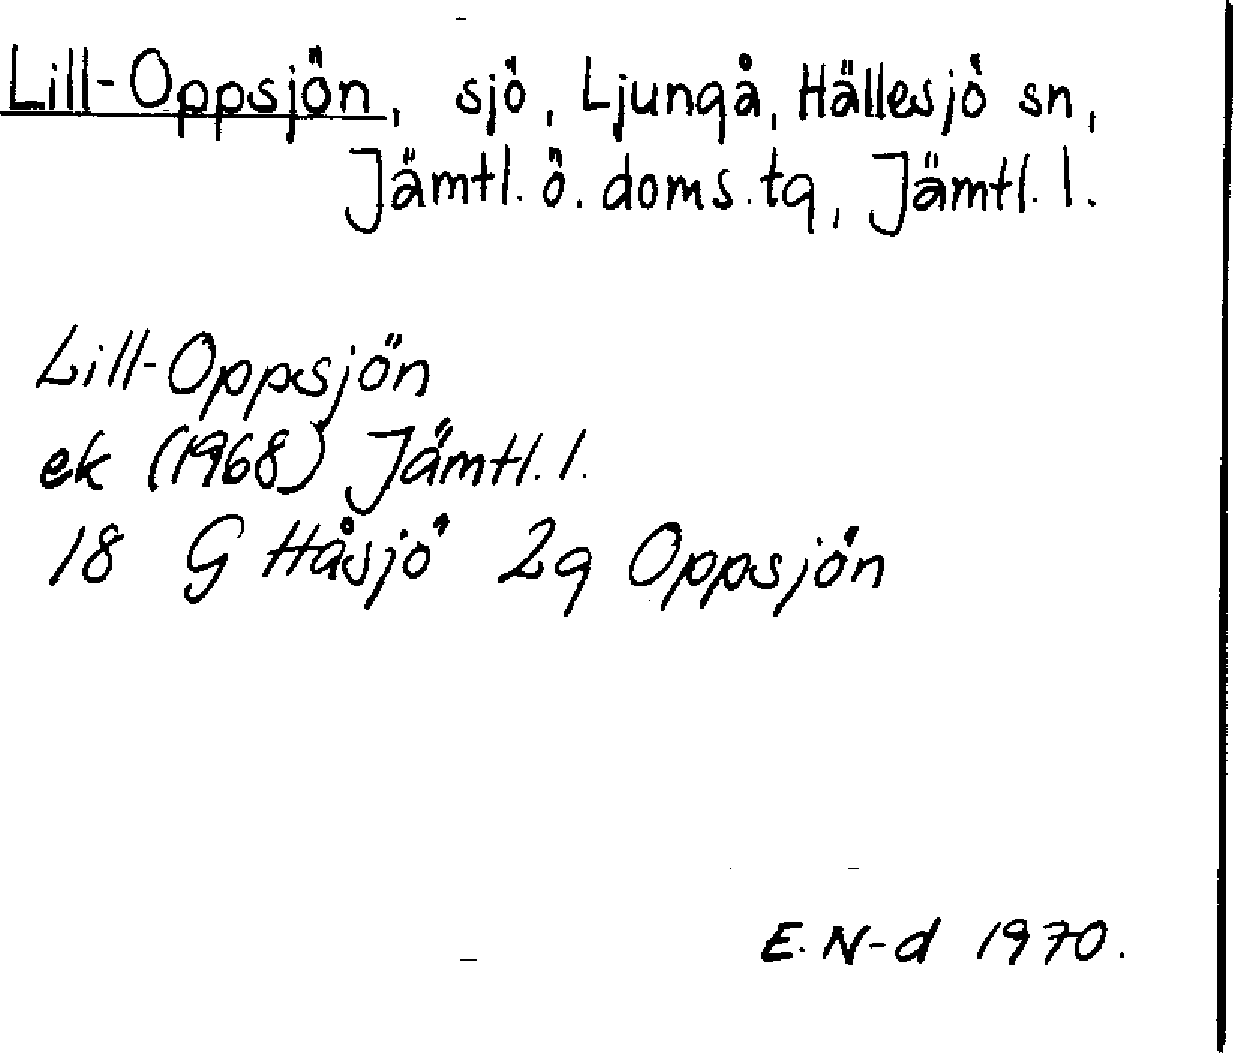 Lill-Oppsjön, sjö, Ljungå, Hällesjö sn,
Jämtl. ö. doms. tg, Jämtl. l.
Lill-Oppsjön
ek (1968) Jämtl. l.
18 G Håsjö 2g Oppsjön
E. N-d 1970.